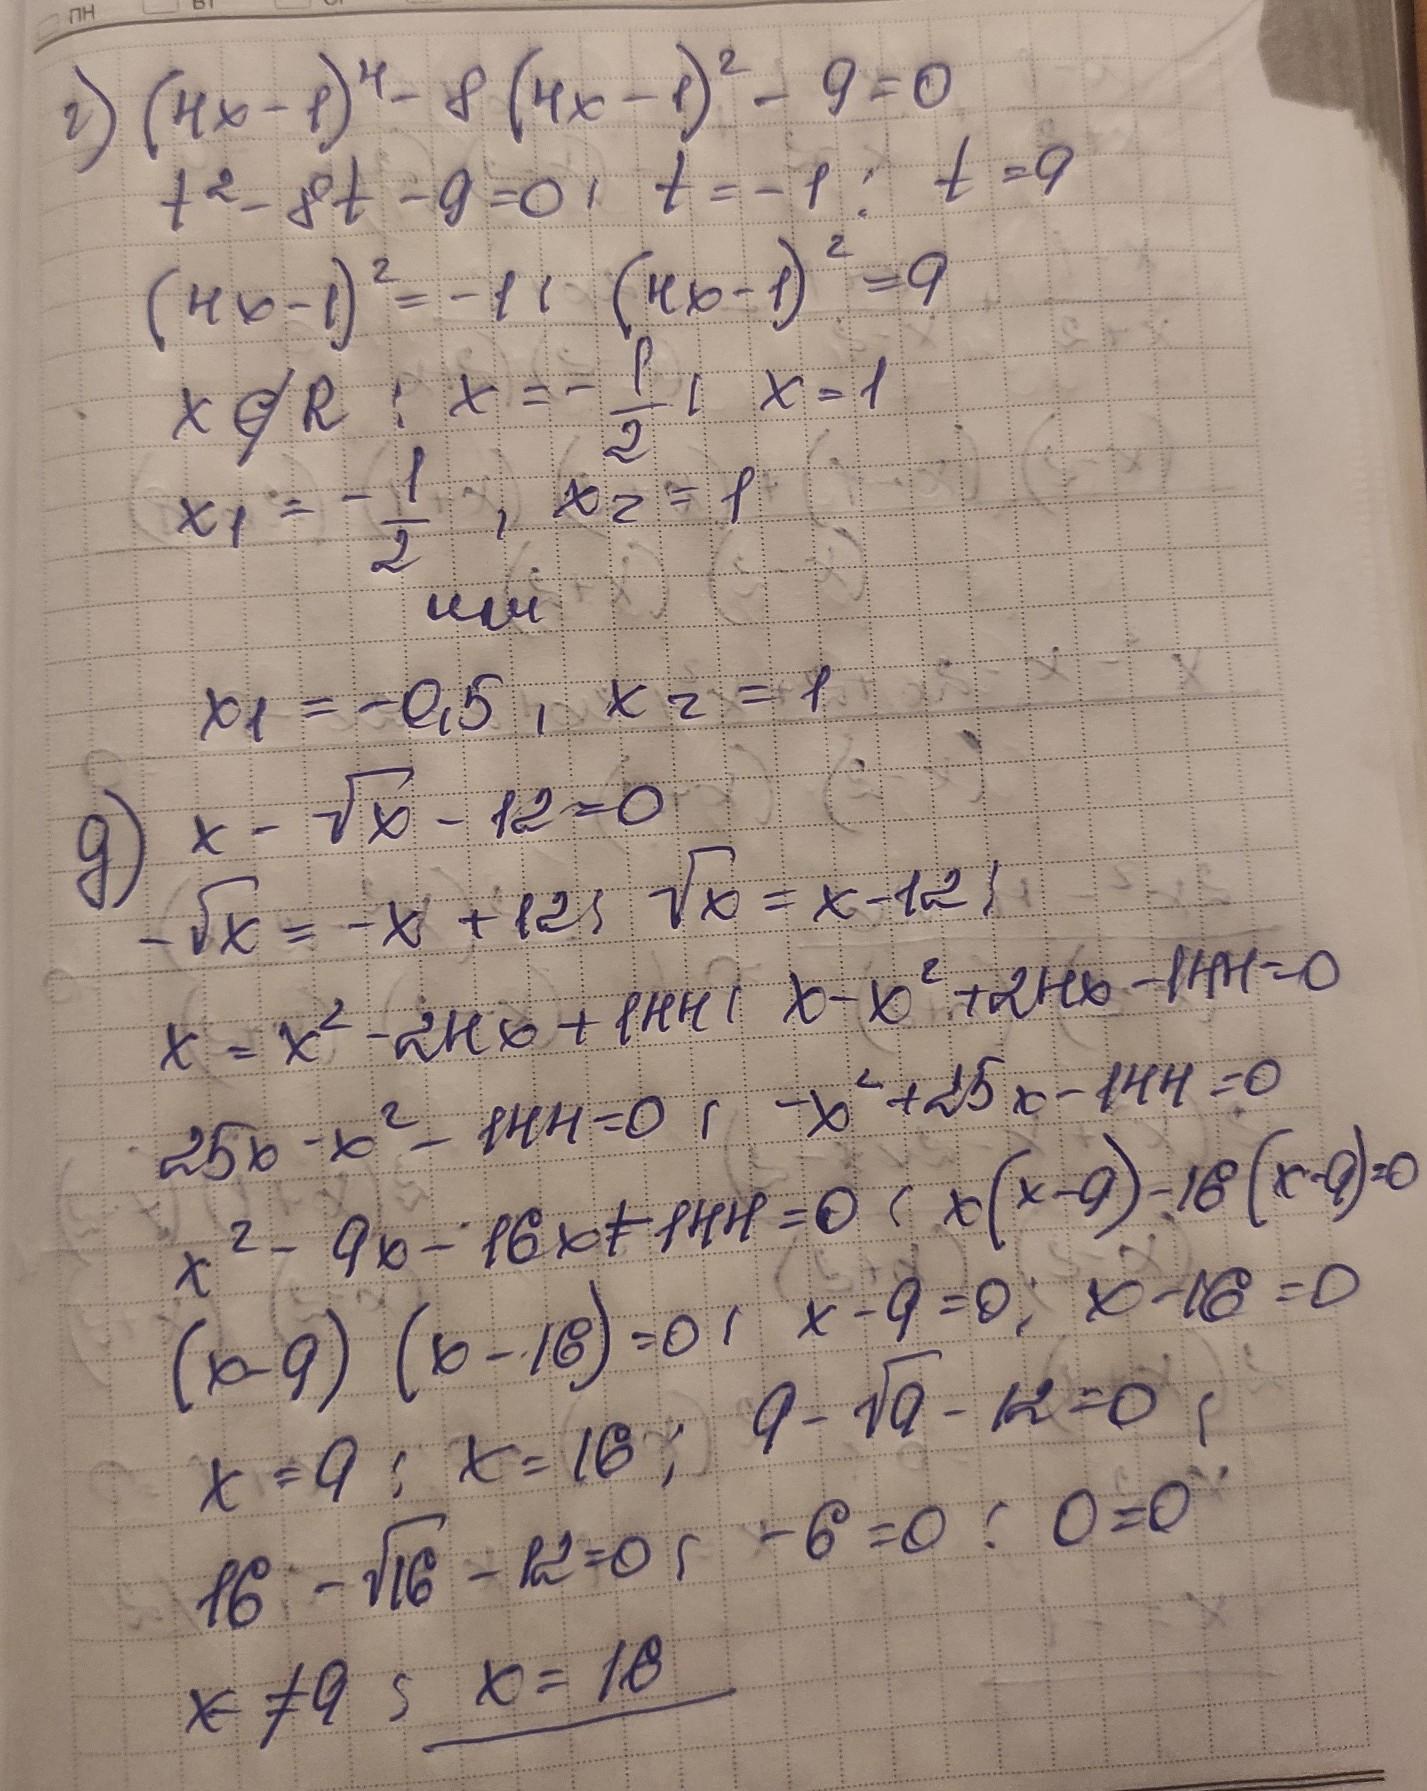 ПН ВТ СР
г) (4x-1)⁴ - 8(4x-1)² - 9=0
t² - 8t - 9=0; t=-1; t=9
(4x-1)² = -1; (4x-1)² = 9
x∉R; x = -1/2; x=1
x₁ = -1/2, x₂ = 1
или
x₁ = -0,5, x₂ = 1
д) x - √x - 12=0
-√x = -x + 12; √x = x-12;
x = x² - 24x + 144; x - x² + 24x - 144=0
25x - x² - 144=0; -x² + 25x - 144=0
x² - 9x - 16x + 144=0; x(x-9) - 16(x-9)=0
(x-9) (x-16)=0; x-9=0; x-16=0
x=9; x=16; 9-√9-12=0;
16 - √16 - 12=0; -6=0; 0=0
x≠9; x=16